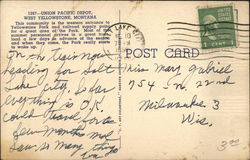 1287—UNION PACIFIC DEPOT,
WEST YELLOWSTONE, MONTANA
This community is the western entrance to
Yellowstone Park and railroad supply point
for a great area of the Park. Most of the
summer personnel arrives in great train
loads a few days in advance of the season
and, when they come, the Park really starts
to wake up.
LAKE CITY
POST CARD
On the train now
heading for Salt
Lake City. So far
everything is O.K.
Could travel for a
few months now
Saw so many things
Miss Mary Gabriel
754 So. 22nd
Milwaukee 3
Wis.
3.00